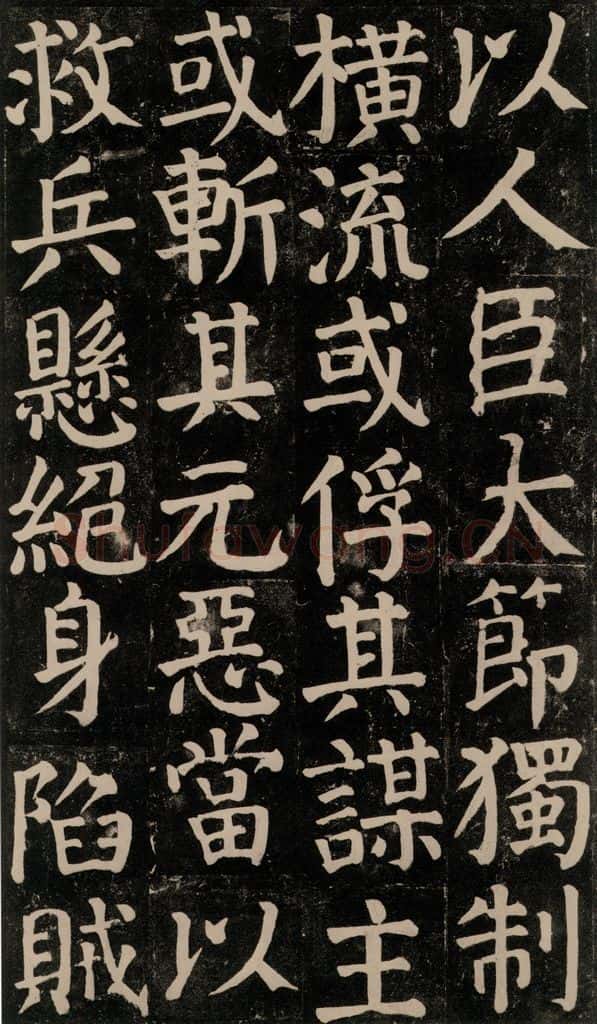 以人臣大節獨制
橫流或俘其謀主
或斬其元惡當以
救兵懸絕身陷賊
Shufawang.CN